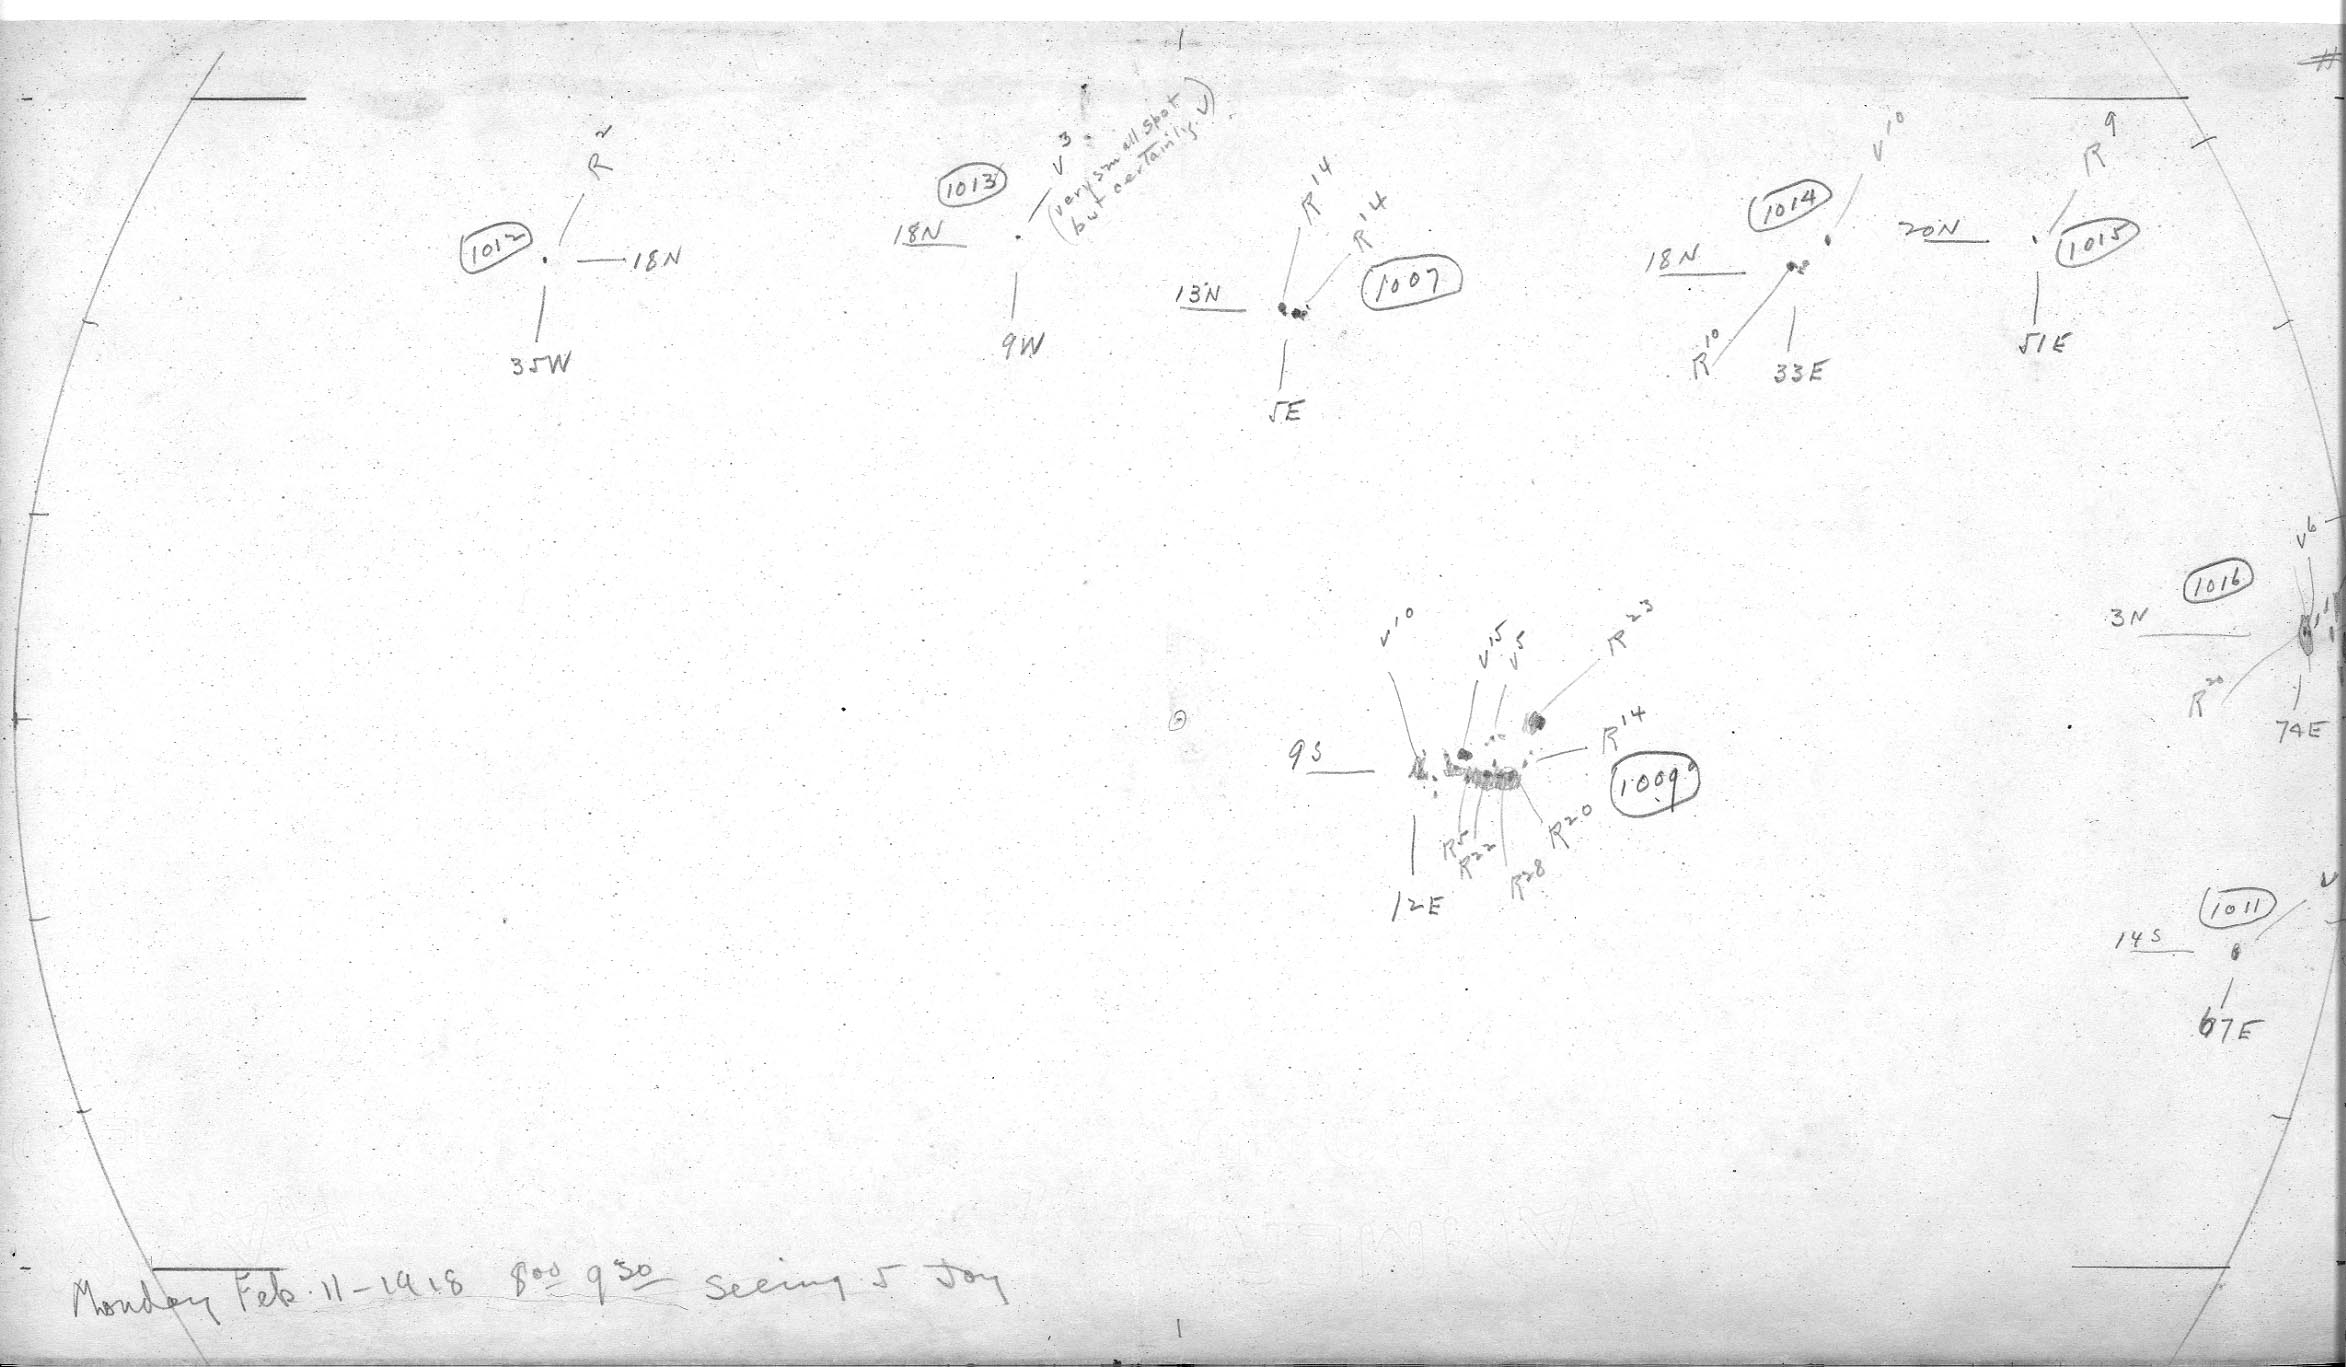 R²
1012
18N
35W
1013
V³
(very small spot
but certainly V)
18N
9W
R¹⁴
R¹⁴
1007
13N
5E
1014
V¹⁰
18N
R¹⁰
33E
R⁹
20N
1015
51E
V⁶
1016
3N
R²⁰
74E
V¹⁰
V¹⁵
V⁵
R²³
R¹⁴
9S
1009
R⁵
R²²
R²⁸
R²⁰
12E
V
1011
14S
67E
Monday Feb. 11-1918 8⁰⁰ 9³⁰ Seeing 5 Joy